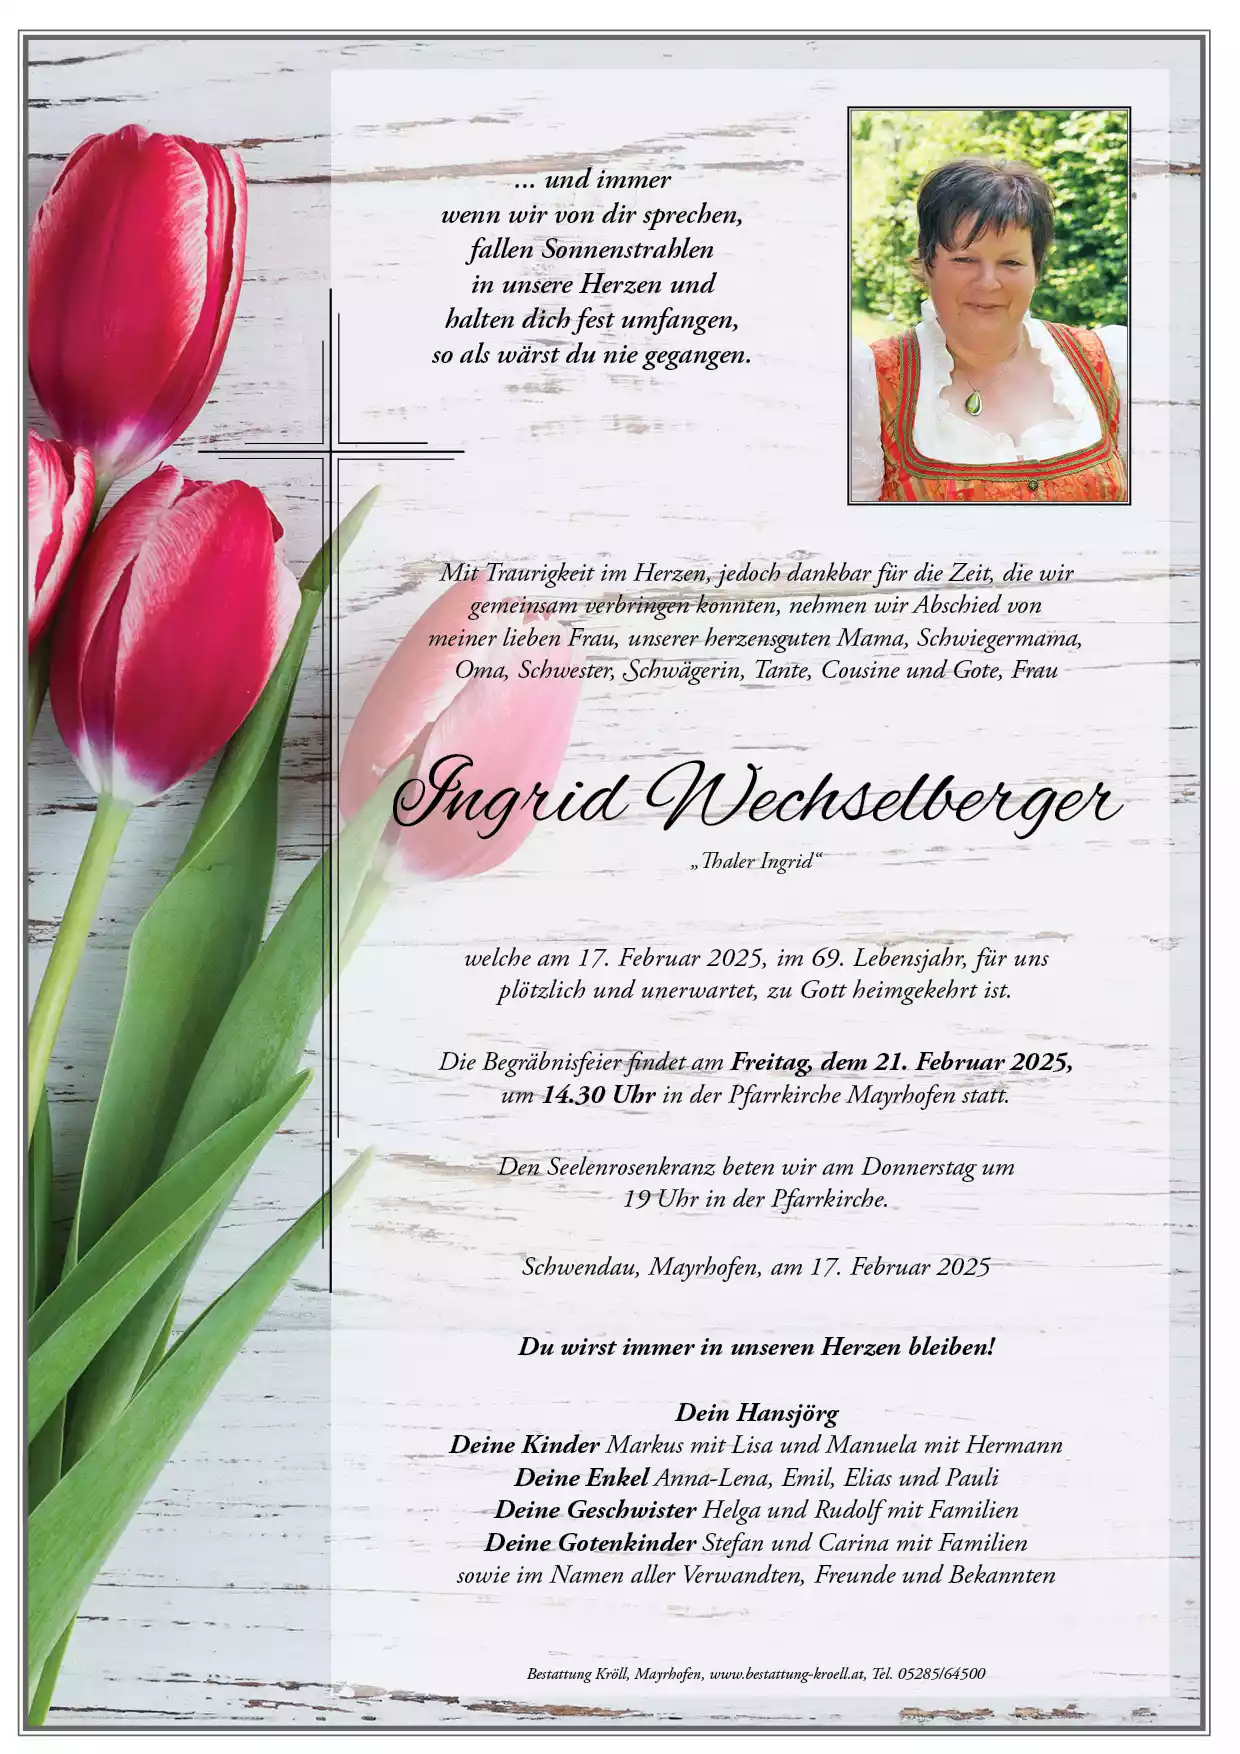 ... und immer
wenn wir von dir sprechen,
fallen Sonnenstrahlen
in unsere Herzen und
halten dich fest umfangen,
so als wärst du nie gegangen.
Mit Traurigkeit im Herzen, jedoch dankbar für die Zeit, die wir
gemeinsam verbringen konnten, nehmen wir Abschied von
meiner lieben Frau, unserer herzensguten Mama, Schwiegermama,
Oma, Schwester, Schwägerin, Tante, Cousine und Gote, Frau
Ingrid Wechselberger
„Thaler Ingrid“
welche am 17. Februar 2025, im 69. Lebensjahr, für uns
plötzlich und unerwartet, zu Gott heimgekehrt ist.
Die Begräbnisfeier findet am Freitag, dem 21. Februar 2025,
um 14.30 Uhr in der Pfarrkirche Mayrhofen statt.
Den Seelenrosenkranz beten wir am Donnerstag um
19 Uhr in der Pfarrkirche.
Schwendau, Mayrhofen, am 17. Februar 2025
Du wirst immer in unseren Herzen bleiben!
Dein Hansjörg
Deine Kinder Markus mit Lisa und Manuela mit Hermann
Deine Enkel Anna-Lena, Emil, Elias und Pauli
Deine Geschwister Helga und Rudolf mit Familien
Deine Gotenkinder Stefan und Carina mit Familien
sowie im Namen aller Verwandten, Freunde und Bekannten
Bestattung Kröll, Mayrhofen, www.bestattung-kroell.at, Tel. 05285/64500